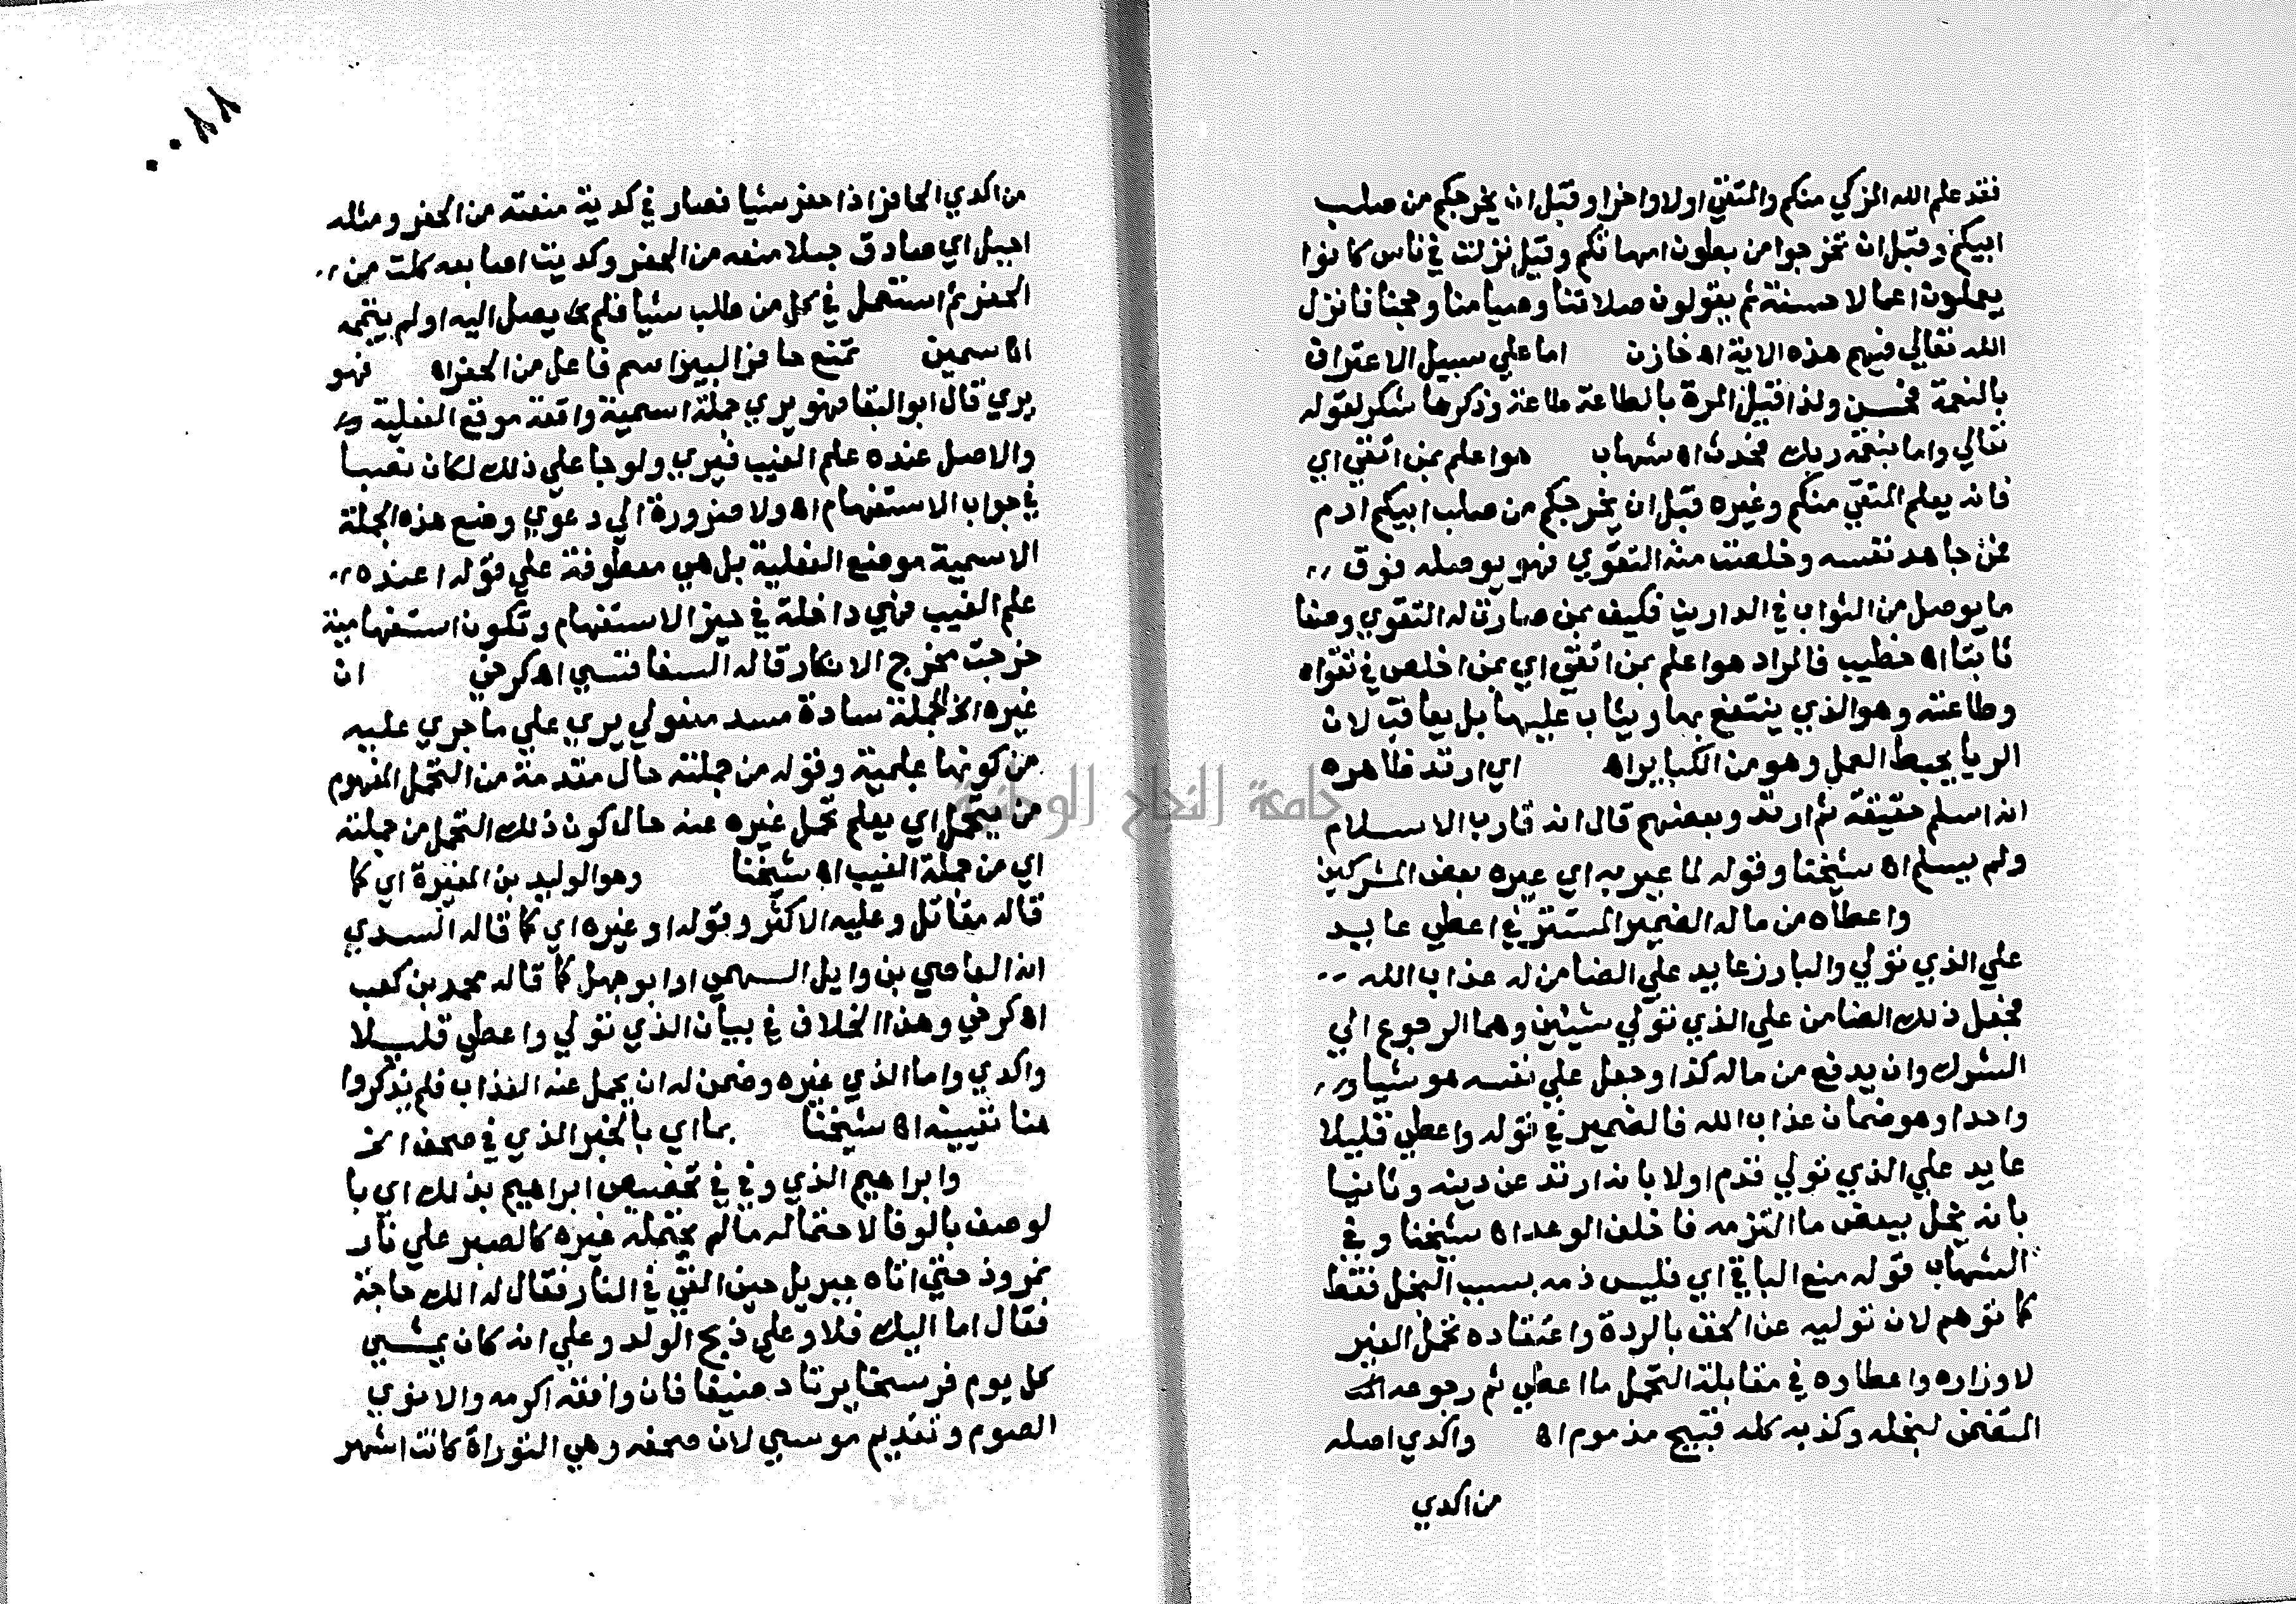 فقد علم الله الزكي منكم والمتقي اولا واخرا وقبل ان يخرجكم من صلب
ابيكم وقبل ان تخرجوا من بطون امهاتكم وقيل نزلت في ناس كانوا
يعملون اعمالا حسنة ثم يقولون صلاتنا وصيامنا وحجنا فانزل
الله تعالي فيهم هذه الاية اه خازن اما علي سبيل الاعتراف
بالنعمة فحسن ولذا قيل المرة بالطاعة طاعة وذكرها شكر لقوله
تعالي واما بنعمة ربك فحدث اه شهاب هو اعلم بمن اتقي اي
فانه يعلم المتقي منكم وغيره قبل ان يخرجكم من صلب ابيكم ادم
فمن جاهد نفسه وخلصت منه التقوي فهو يوصله فوق
ما يوصل من الثواب في الدارين فكيف بمن صارت له التقوي وصفا
ثابتا اه خطيب فالمراد هو اعلم بمن اتقي اي بمن اخلص في تقواه
وطاعته وهو الذي ينتفع بها ويثاب عليها بل يعاقب لان
الريا يحبط العمل وهو من الكباير اه اي ارتد ظاهره
انه اسلم حقيقة ثم ارتد وبعضهم قال انه قارب الاسلام
ولم يسلم اه شيخنا وقوله لما عير به اي عيره بعض المشركين
واعطاه من ماله الضمير المستتر في اعطي عايد
علي الذي تولي والبارز عايد علي الضامن له عذاب الله
فجعل ذلك الضامن علي الذي تولي شيئين وهما الرجوع الي
الشرك وان يدفع من ماله كذا وجعل علي نفسه هو شيا
واحدا وهو ضمان عذاب الله فالضمير في قوله واعطي قليلا
عايد علي الذي تولي فذم اولا بانه ارتد عن دينه وثانيا
بانه بخل ببعض ما التزمه فاخلف الوعد اه شيخنا وفي
الشهاب قوله منع الباقي اي فليس ذمه بسبب البخل فقط
كما توهم لان توليه عن الحق بالردة واعتقاده تحمل الغير
لاوزاره واعطاره في مقابلة التحمل ما اعطي ثم رجوعه
المتضمن لبخله وكذبه كله قبيح مذموم اه واكدي اصله
من اكدي
من اكدي الحافر اذا حفر شيا فصار في كدية منعته من الحفر ومثله
اجبل اي صادق جبلا منعه من الحفر وكديت اصابعه كلت من
الحفر ثم استعمل في كل من طلب شيا فلم يصل اليه او لم يتممه
اه سمين تمنع حافر البير اسم فاعل من الحفر اه فهو
يري قال ابو البقا فهو يري جملة اسمية واقعة موقع الفعلية
والاصل عنده علم الغيب فيري ولو جا علي ذلك لكان نصبا
في جواب الاستفهام اه ولا ضرورة الي دعوي وضع هذه الجملة
الاسمية موضع الفعلية بل هي معطوفة علي قوله اعنده
علم الغيب فهي داخلة في حيز الاستفهام وتكون استفهامية
خرجت مخرج الانكار قاله السفاقسي اه كرخي ان
غيره الخ الجملة سادة مسد مفعولي يري علي ما جري عليه
من كونها علمية وقوله من جملته حال مقدمة من التحمل المفهوم
من يتحمل اي يعلم تحمل غيره عنه حال كون ذلك التحمل من جملته
اي من جملة الغيب اه شيخنا وهو الوليد بن المغيرة اي كما
قاله مقاتل وعليه الاكثر وقوله او غيره اي كما قاله السدي
انه العاصي بن وايل السهمي او ابو جهل كما قاله محمد بن كعب
اه كرخي وهذا الخلاف في بيان الذي تولي واعطي قليلا
واكدي واما الذي غيره وضمن له ان يحمل عنه العذاب فلم يذكروا
هنا تعيينه اه شيخنا بما اي بالخبر الذي في صحف الخ
وابراهيم الذي وفي في تخصيص ابراهيم بذلك اي با
لوصف بالوفا لاحتماله مالم يحتمله غيره كالصبر علي نار
نمروذ حتي اتاه جبريل حين القي في النار فقال له الك حاجة
فقال اما اليك فلا وعلي ذبح الولد وعلي انه كان يمشي
كل يوم فرسخا يرتاد ضيفا فان وافقه اكرمه والا نوي
الصوم وتقديم موسي لان صحفه وهي التوراة كانت اشهر
جامعة النجاح الوطنية